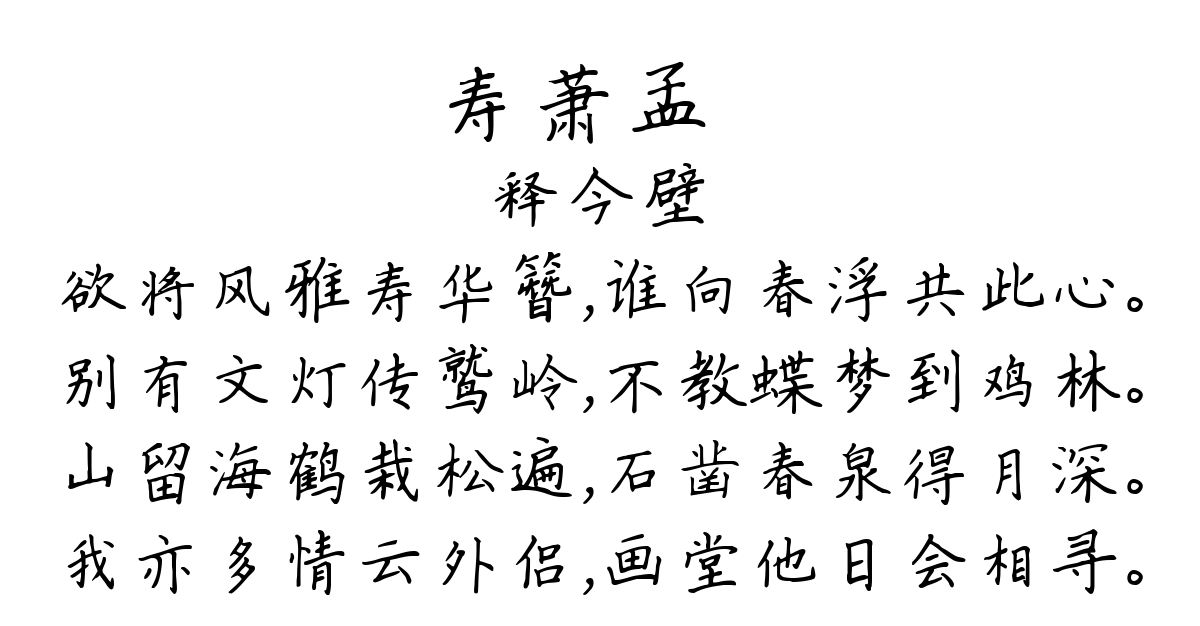 寿萧孟
释今壁
欲将风雅寿华簪,谁向春浮共此心。
别有文灯传鹫岭,不教蝶梦到鸡林。
山留海鹤栽松遍,石凿春泉得月深。
我亦多情云外侣,画堂他日会相寻。